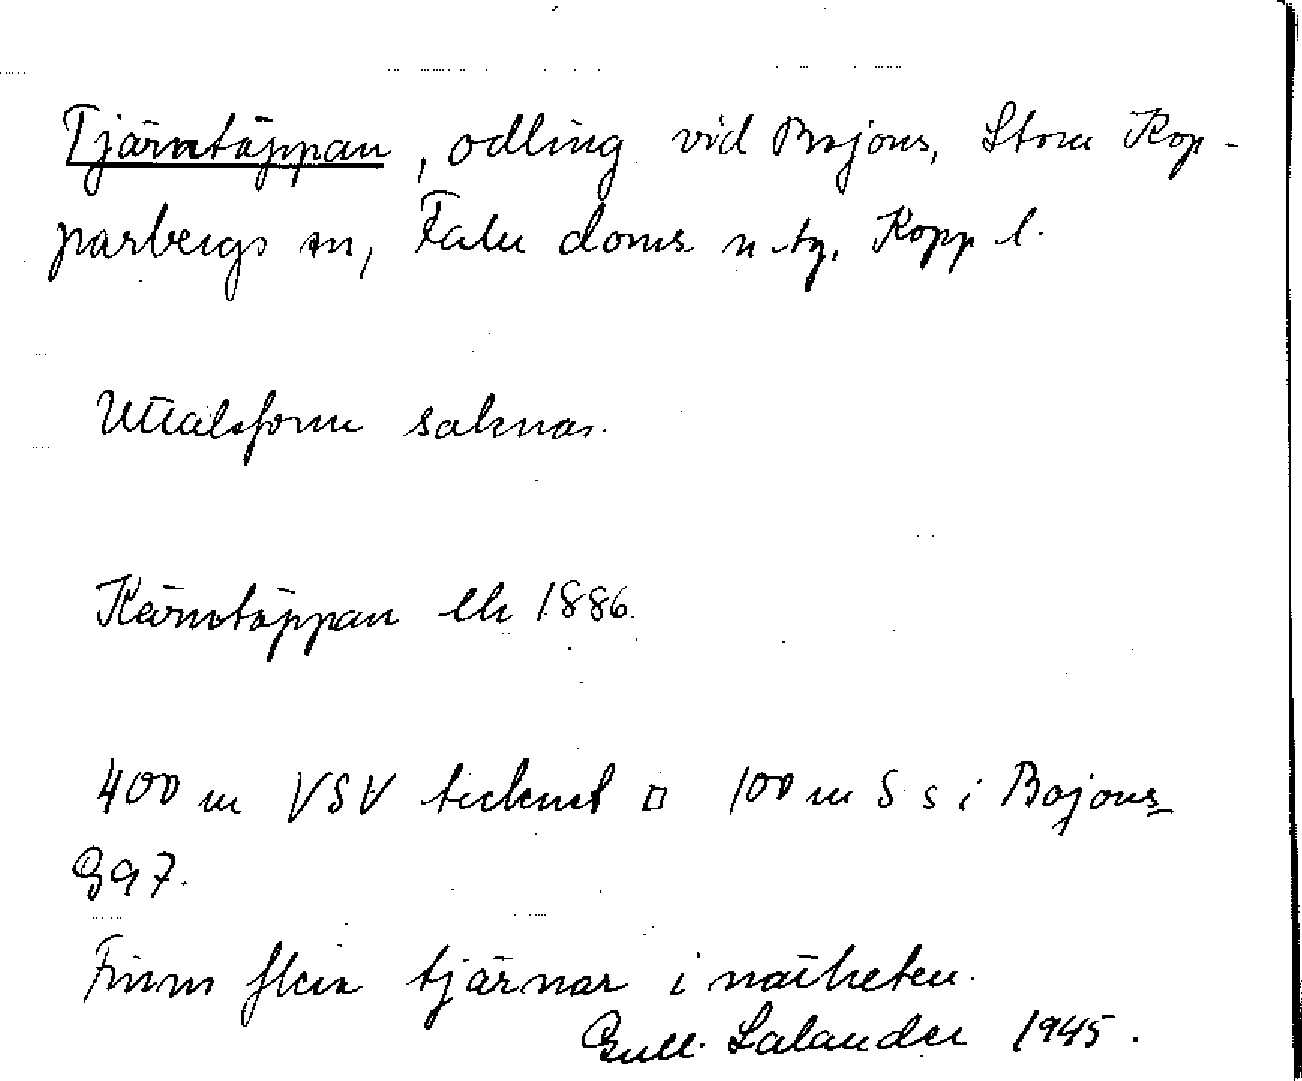 Tjärntäppan, odling vid Bojons, Stora Kop-
parbergs sn, Falu doms n tg, Kopp l.
Uttalsform saknas.
Kärntäppan ek 1886.
400 m VSV tecknet □ 100 m S s i Bojons
G97.
Finns flera tjärnar i närheten.
Gull. Salander 1945.